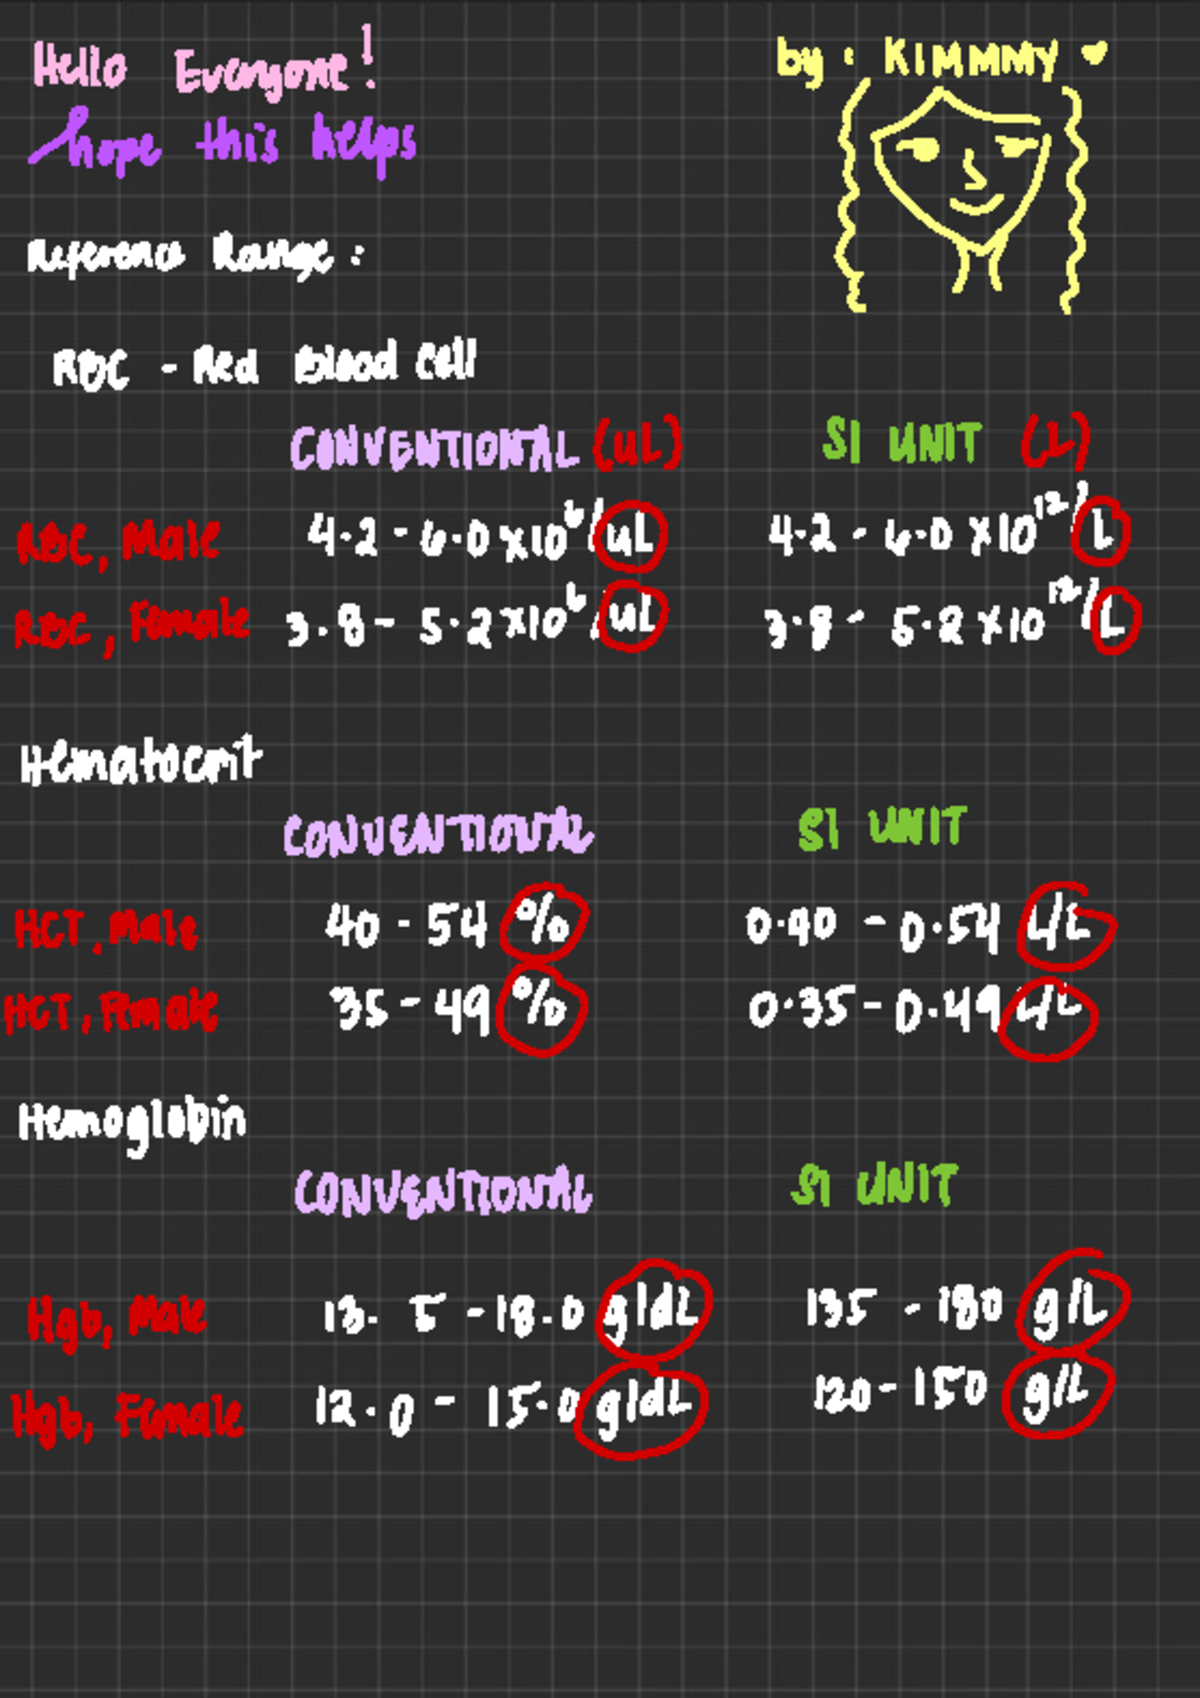 Hello Everyone!
by: KIMMMY ♥
hope this helps
Reference Range:
RBC - Red Blood Cell
CONVENTIONAL (uL) SI UNIT (L)
RBC, Male 4.2 - 6.0 x10⁶/uL 4.2 - 6.0 x10¹²/L
RBC, Female 3.8 - 5.2 x10⁶/uL 3.8 - 5.2 x10¹²/L
Hematocrit
CONVENTIONAL SI UNIT
HCT, Male 40 - 54 % 0.40 - 0.54 L/L
HCT, Female 35 - 49 % 0.35 - 0.49 L/L
Hemoglobin
CONVENTIONAL SI UNIT
Hgb, Male 13.5 - 18.0 g/dL 135 - 180 g/L
Hgb, Female 12.0 - 15.0 g/dL 120 - 150 g/L